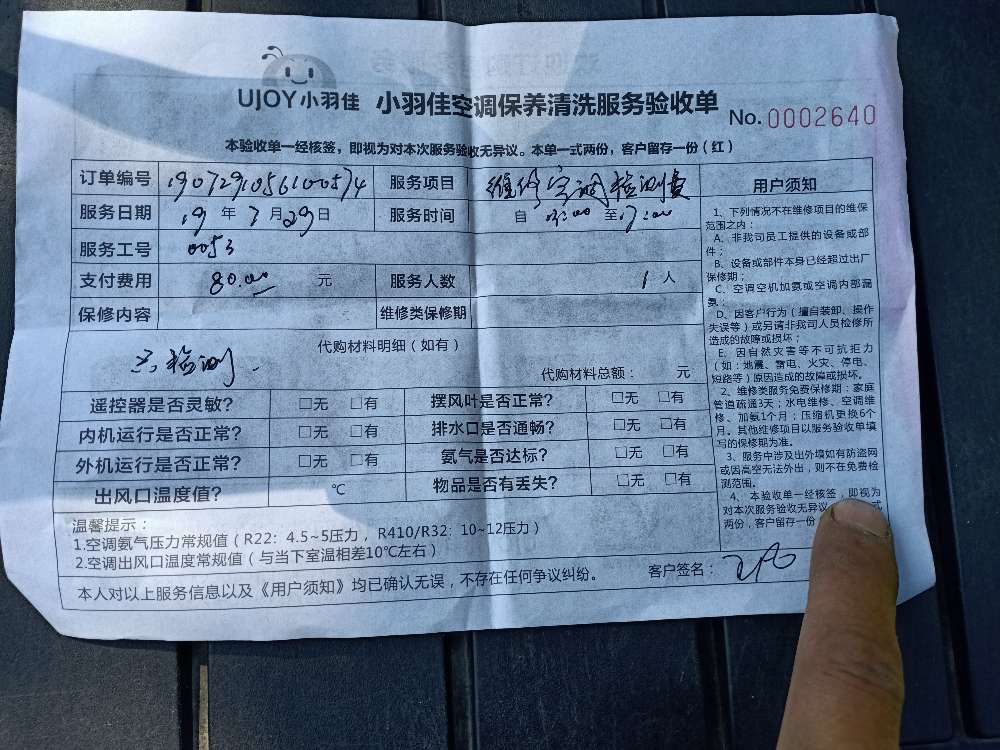 UJOY小羽佳 小羽佳空调保养清洗服务验收单 No.0002640
本验收单一经核签，即视为对本次服务验收无异议。本单一式两份，客户留存一份（红）
订单编号 服务项目 维修空调检测费
服务日期 19年7月29日 服务时间 自 至17:00
服务工号 0053
支付费用 80.00 元 服务人数 1人
保修内容 维修类保修期
代购材料明细（如有）
检测
代购材料总额： 元
遥控器是否灵敏？ □无 □有 摆风叶是否正常？ □无 □有
内机运行是否正常？ □无 □有 排水口是否通畅？ □无 □有
外机运行是否正常？ □无 □有 氨气是否达标？ □无 □有
出风口温度值？ ℃ 物品是否有丢失？ □无 □有
温馨提示：
1.空调氨气压力常规值（R22：4.5~5压力，R410/R32：10~12压力）
2.空调出风口温度常规值（与当下室温相差10℃左右）
本人对以上服务信息以及《用户须知》均已确认无误，不存在任何争议纠纷。 客户签名：
用户须知
1、下列情况不在维修项目的维保
范围之内：
A、非我司员工提供的设备或部
件；
B、设备或部件本身已经超过出厂
保修期；
C、空调空机加氨或空调内部漏
氨；
D、因客户行为（擅自装卸、操作
失误等）或另请非我司人员检修所
造成的故障或损坏；
E、因自然灾害等不可抗拒力
（如：地震、雷电、火灾、停电、
短路等）原因造成的故障或损坏。
2、维修类服务免费保修期：家庭
管道疏通3天；水电维修、空调维
修、加氨1个月；压缩机更换6个
月。其他维修项目以服务验收单填
写的保修期为准。
3、服务中涉及出外墙如有防盗网
或因高空无法外出，则不在免费检
测范围。
4、本验收单一经核签，即视为
对本次服务验收无异议 式
两份，客户留存一份